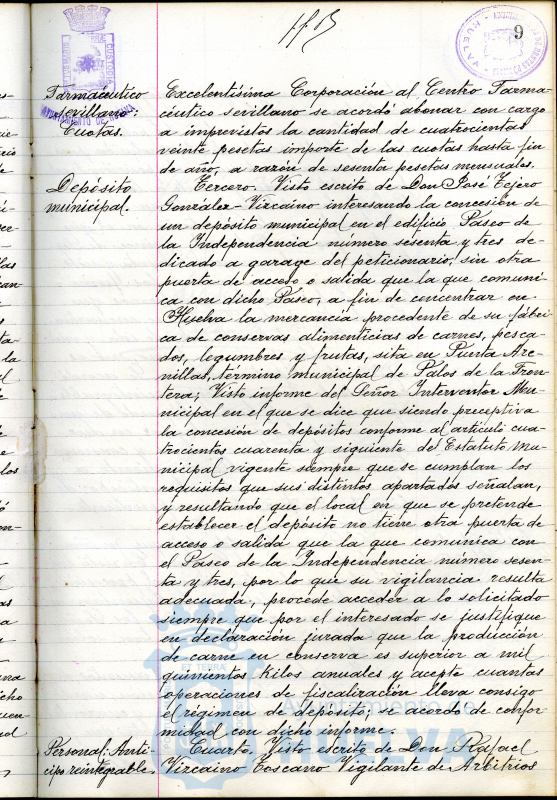 9
Farmacéutico
sevillano:
Cuotas.
Excelentísima Corporación al Centro Farma-
céutico sevillano se acordó abonar con cargo
a imprevistos la cantidad de cuatrocientas
veinte pesetas importe de las cuotas hasta fin
de año, a razón de sesenta pesetas mensuales.
Depósito
municipal.
Tercero. Visto escrito de Don José Tejero
González-Vizcaino interesando la concesión de
un depósito municipal en el edificio Paseo de
la Independencia número sesenta y tres de-
dicado a garage del peticionario, sin otra
puerta de acceso o salida que la que comuni-
ca con dicho Paseo, a fin de concentrar en
Huelva la mercancía procedente de su fábri-
ca de conservas alimenticias de carnes, pesca-
dos, legumbres y frutas, sita en Punta Are-
nillas, término municipal de Palos de la Fron-
tera; Visto informe del Señor Interventor Mu-
nicipal en el que se dice que siendo preceptiva
la concesión de depósitos conforme al artículo cua-
trocientos cuarenta y siguiente del Estatuto Mu-
nicipal vigente siempre que se cumplan los
requisitos que sus distintos apartados señalan,
y resultando que el local en que se pretende
establecer el depósito no tiene otra puerta de
acceso o salida que la que comunica con
el Paseo de la Independencia número sesen-
ta y tres, por lo que su vigilancia resulta
adecuada, procede acceder a lo solicitado
siempre que por el interesado se justifique
en declaración jurada que la producción
de carne en conserva es superior a mil
quinientos kilos anuales y acepte cuantas
operaciones de fiscalización lleva consigo
el régimen de depósito; se acordó de confor-
midad con dicho informe.
Personal: Anti-
cipo reintegrable.
Cuarto. Visto escrito de Don Rafael
Vizcaino Toscano Vigilante de Arbitrios
ET TERRA
Ayuntamiento de
HUELVA
AYUNTAMIENTO DE HUELVA
HUELVA